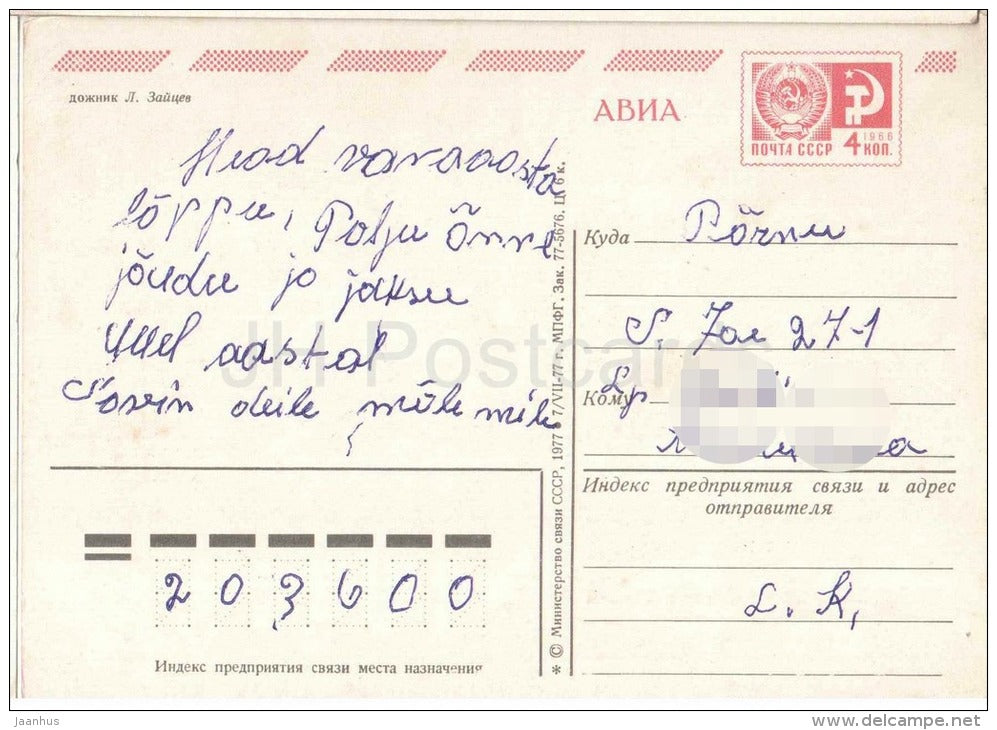 дожник Л. Зайцев
АВИА
1966
ПОЧТА СССР 4 КОП.
Head vanaaasta
lõppu, Palju õnne
jõudu ja jaksu
Uuel aastal
Soovin teile
Куда Pärnu
S. 27-1
Кому Lp
Индекс предприятия связи и адрес
отправителя
L. K,
203600
Индекс предприятия связи места назначения
* © Министерство связи СССР, 1977 7/VII-77 г. МПФГ. Зак. 77-5676. Ц. 6 к.
JH Postcards
jaanhus
www.delcampe.net